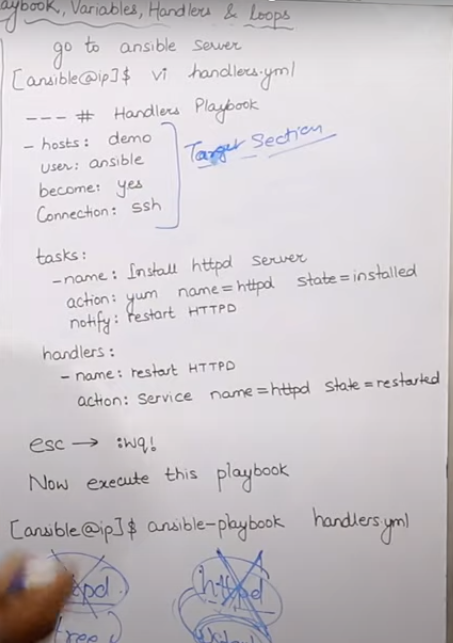 aybook, Variables, Handlers & Loops
go to ansible server
[ansible@ip]$ vi handlers.yml
--- # Handlers Playbook
- hosts: demo
user: ansible
become: yes
Connection: ssh
Target Section
tasks:
- name: Install httpd server
action: yum name=httpd state=installed
notify: restart HTTPD
handlers:
- name: restart HTTPD
action: service name=httpd state=restarted
esc → :wq!
Now execute this playbook
[ansible@ip]$ ansible-playbook handlers.yml
pd
httpd
tree